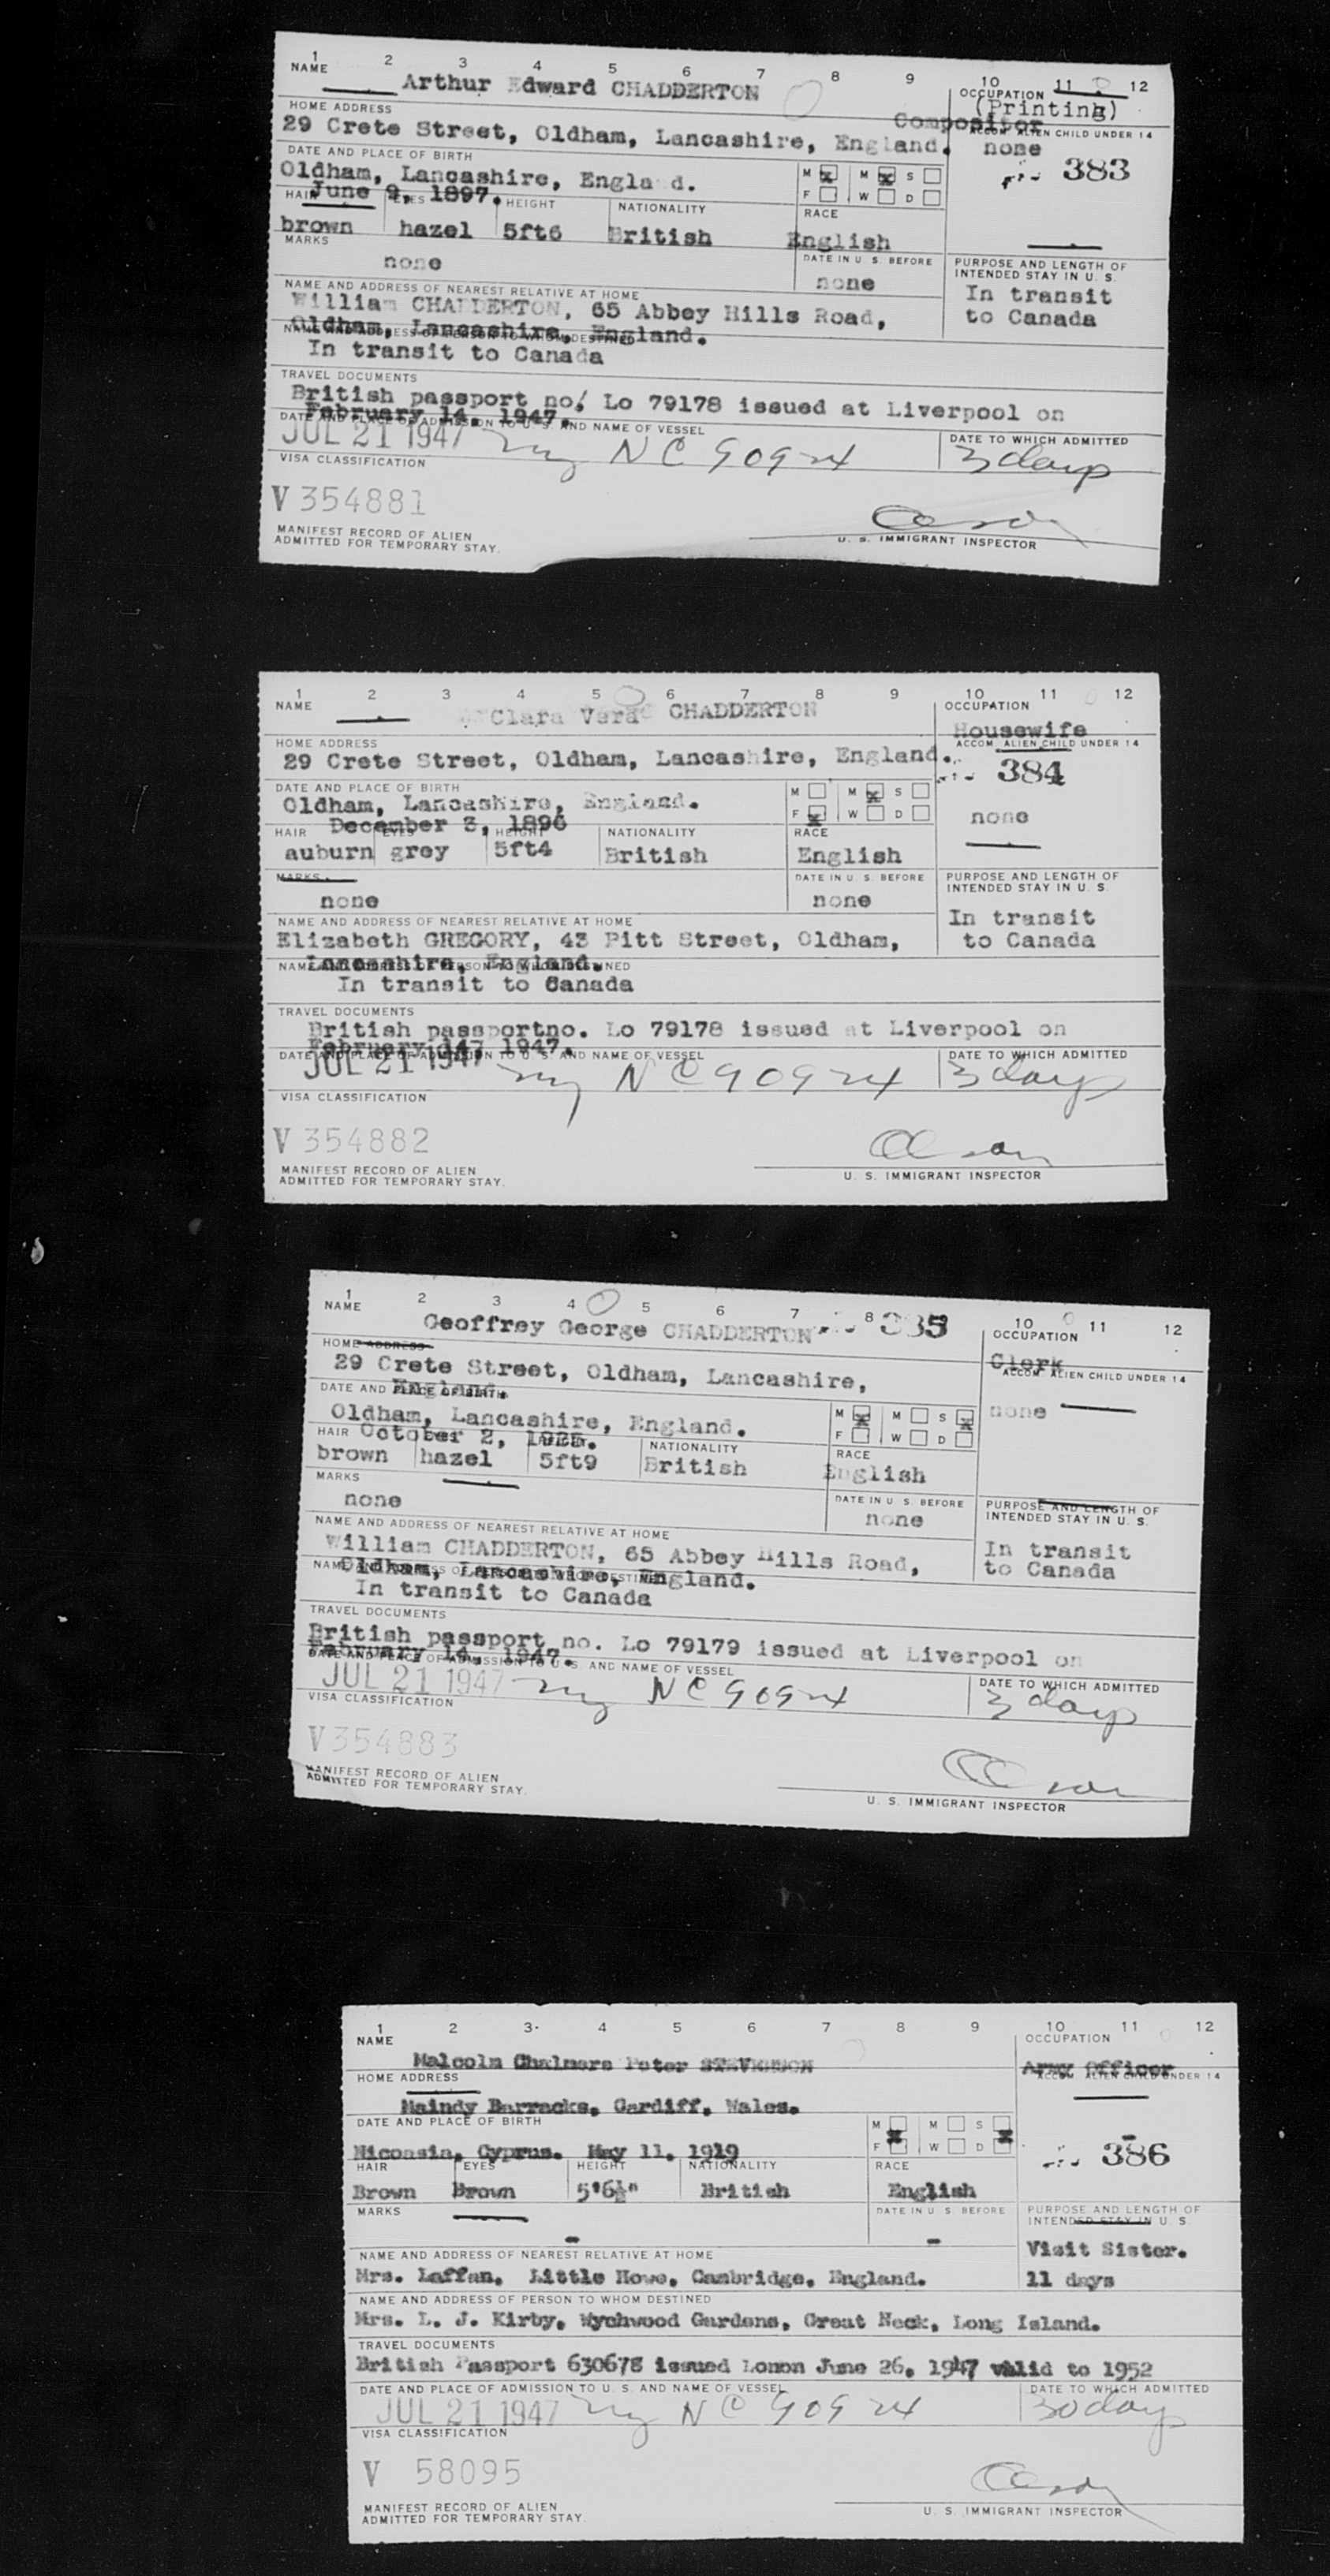 1 2 3 4 5 6 7 8 9 10 11 12
NAME Arthur Edward CHADDERTON OCCUPATION
(Printing)
Compositor
HOME ADDRESS ACCOM. ALIEN CHILD UNDER 14
29 Crete Street, Oldham, Lancashire, England. none
383
DATE AND PLACE OF BIRTH
Oldham, Lancashire, England. M X M X S
June 9, 1897. F W D
HAIR EYES HEIGHT NATIONALITY RACE
brown hazel 5ft6 British English
MARKS DATE IN U. S. BEFORE PURPOSE AND LENGTH OF
INTENDED STAY IN U. S.
none none In transit
to Canada
NAME AND ADDRESS OF NEAREST RELATIVE AT HOME
William CHADDERTON, 65 Abbey Hills Road,
Oldham, Lancashire, England.
NAME AND ADDRESS OF PERSON TO WHOM DESTINED
In transit to Canada
TRAVEL DOCUMENTS
British passport no. Lo 79178 issued at Liverpool on
February 14, 1947.
DATE AND PLACE OF ADMISSION TO U. S. AND NAME OF VESSEL DATE TO WHICH ADMITTED
JUL 21 1947 ny NC 90924 3 days
VISA CLASSIFICATION
V 354881
MANIFEST RECORD OF ALIEN
ADMITTED FOR TEMPORARY STAY. U. S. IMMIGRANT INSPECTOR
1 2 3 4 5 6 7 8 9 10 11 12
NAME Clara Vera CHADDERTON OCCUPATION
Housewife
HOME ADDRESS ACCOM. ALIEN CHILD UNDER 14
29 Crete Street, Oldham, Lancashire, England.
384
DATE AND PLACE OF BIRTH
Oldham, Lancashire, England. M M X S none
December 3, 1896 F X W D
HAIR EYES HEIGHT NATIONALITY RACE
auburn grey 5ft4 British English
MARKS DATE IN U. S. BEFORE PURPOSE AND LENGTH OF
INTENDED STAY IN U. S.
none none In transit
to Canada
NAME AND ADDRESS OF NEAREST RELATIVE AT HOME
Elizabeth GREGORY, 43 Pitt Street, Oldham,
Lancashire, England.
NAME AND ADDRESS OF PERSON TO WHOM DESTINED
In transit to Canada
TRAVEL DOCUMENTS
British passportno. Lo 79178 issued at Liverpool on
February 14, 1947.
DATE AND PLACE OF ADMISSION TO U. S. AND NAME OF VESSEL DATE TO WHICH ADMITTED
JUL 21 1947 ny NC 90924 3 days
VISA CLASSIFICATION
V 354882
MANIFEST RECORD OF ALIEN
ADMITTED FOR TEMPORARY STAY. U. S. IMMIGRANT INSPECTOR
1 2 3 4 5 6 7 8 10 11 12
NAME Geoffrey George CHADDERTON 385 OCCUPATION
Clerk
HOME ADDRESS ACCOM. ALIEN CHILD UNDER 14
29 Crete Street, Oldham, Lancashire,
England.
DATE AND PLACE OF BIRTH
Oldham, Lancashire, England. M X M S X none
October 2, 1925. F W D
HAIR NATIONALITY RACE
brown hazel 5ft9 British English
MARKS DATE IN U. S. BEFORE PURPOSE AND LENGTH OF
INTENDED STAY IN U. S.
none none In transit
to Canada
NAME AND ADDRESS OF NEAREST RELATIVE AT HOME
William CHADDERTON, 65 Abbey Hills Road,
Oldham, Lancashire, England.
NAME AND ADDRESS OF PERSON TO WHOM DESTINED
In transit to Canada
TRAVEL DOCUMENTS
British passport no. Lo 79179 issued at Liverpool on
February 14, 1947.
DATE AND PLACE OF ADMISSION TO U. S. AND NAME OF VESSEL DATE TO WHICH ADMITTED
JUL 21 1947 ny NC 90924 3 days
VISA CLASSIFICATION
V 354883
MANIFEST RECORD OF ALIEN
ADMITTED FOR TEMPORARY STAY. U. S. IMMIGRANT INSPECTOR
1 2 3 4 5 6 7 8 9 10 11 12
NAME OCCUPATION
Malcolm Chalmers Peter STEVENSON Army Officer
HOME ADDRESS ACCOM. ALIEN CHILD UNDER 14
Maindy Barracks, Cardiff, Wales.
DATE AND PLACE OF BIRTH M M S
Nicoasia, Cyprus. May 11, 1919 F W D
386
HAIR EYES HEIGHT NATIONALITY RACE
Brown Brown 5'6½" British English
MARKS DATE IN U. S. BEFORE PURPOSE AND LENGTH OF
INTENDED STAY IN U. S.
- - Visit Sister.
NAME AND ADDRESS OF NEAREST RELATIVE AT HOME
Mrs. Laffan, Little Howe, Cambridge, England. 11 days
NAME AND ADDRESS OF PERSON TO WHOM DESTINED
Mrs. L. J. Kirby, Wychwood Gardens, Great Neck, Long Island.
TRAVEL DOCUMENTS
British Passport 630678 issued Lonon June 26, 1947 valid to 1952
DATE AND PLACE OF ADMISSION TO U. S. AND NAME OF VESSEL DATE TO WHICH ADMITTED
JUL 21 1947 ny NC 90924 30 days
VISA CLASSIFICATION
V 58095
MANIFEST RECORD OF ALIEN
ADMITTED FOR TEMPORARY STAY. U. S. IMMIGRANT INSPECTOR